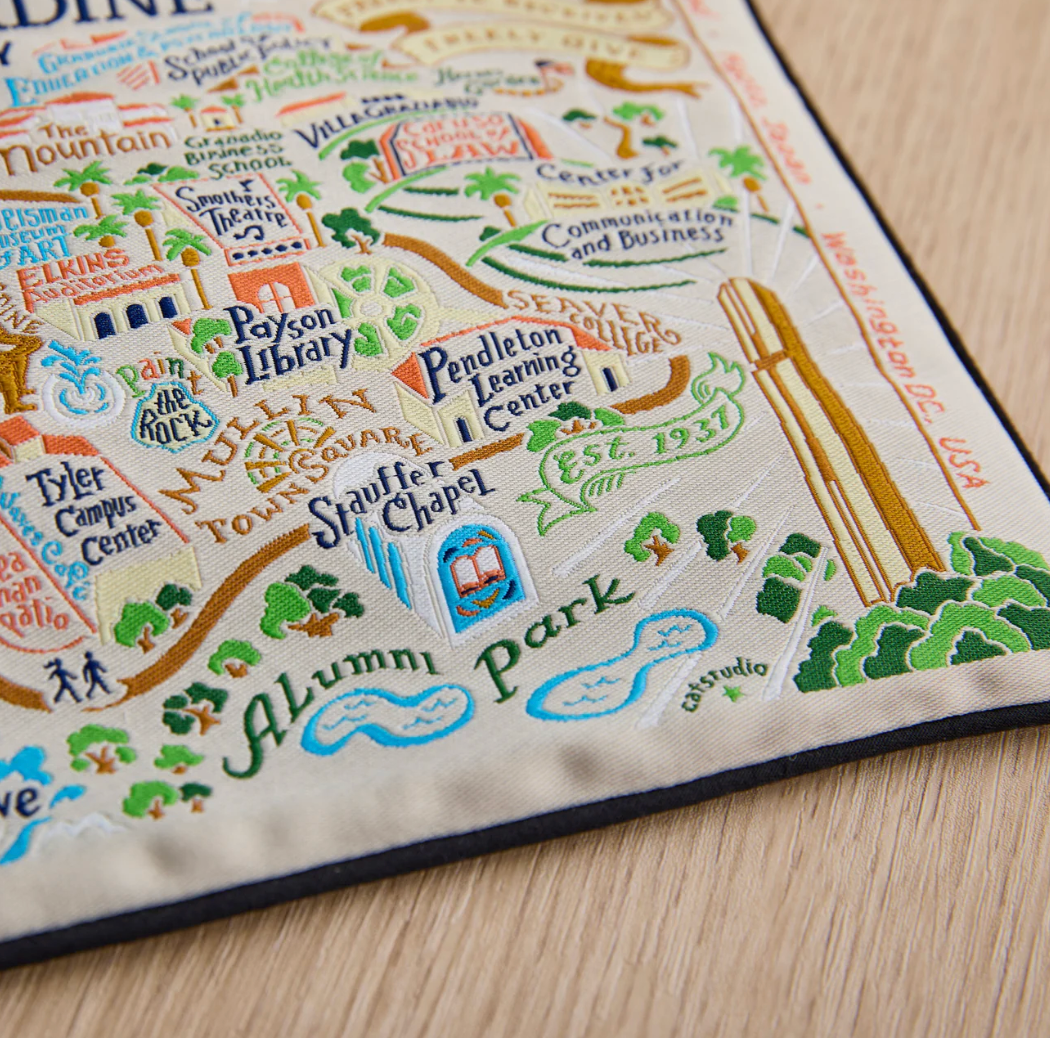 DINE
Y
FREELY GIVE
Education & Psychology
School of
Public Policy
College of
Health Science
Heroes
Garden
The
Mountain
Graziadio
Business
School
VILLA GRAZIADIO
Caruso
School of
LAW
Center for
Communication
and Business
Smothers
Theatre
eisman
Museum
of ART
ELKINS
Auditorium
Payson
Library
SEAVER
COLLEGE
Pendleton
Learning
Center
Paint
the
Rock
MULLIN
TOWN SQUARE
Est. 1937
Stauffer
Chapel
Tyler
Campus
Center
Waves Cafe
Alumni Park
catstudio
ve
Washington DC, USA